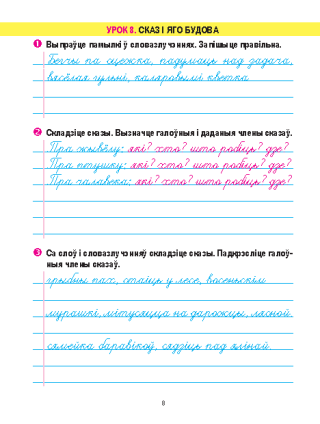 УРОК 8. СКАЗ І ЯГО БУДОВА
1 Выпраўце памылкі ў словазлучэннях. Запішыце правільна.
Бегчы па сцежка, падумаць над задача,
вясёлая гульні, каляровымі кветка
2 Складзіце сказы. Вызначце галоўныя і даданыя члены сказаў.
Пра жывёлу: які? хто? што робіць? дзе?
Пра птушку: які? хто? што робіць? дзе?
Пра чалавека: які? хто? што робіць? дзе?
3 Са слоў і словазлучэнняў складзіце сказы. Падкрэсліце галоў-
ныя члены сказаў.
грыбны пах, стаіць у лесе, восеньскім
мурашкі, мітусяцца на дарожцы, лясной
сямейка баравікоў, сядзіць пад ялінай.
8